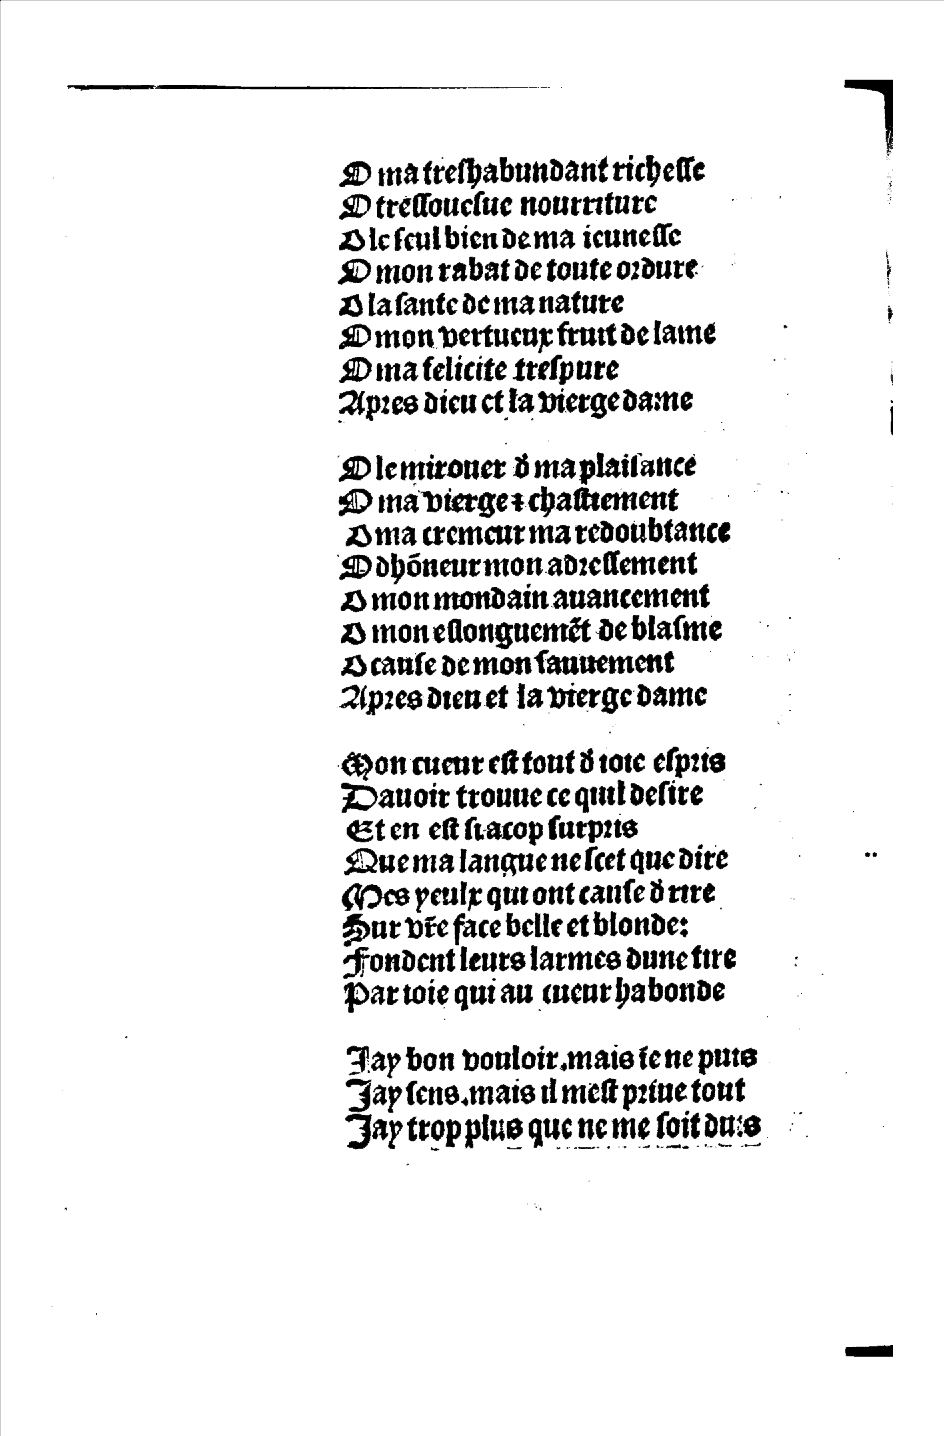 O ma treſhabundant richeſſe
O treſſoueſue nourriture
O le ſeul bien de ma ieuneſſe
O mon rabat de toute oꝛdure
O la ſante de ma nature
O mon vertueux fruit de lame
O ma felicite treſpure
Apꝛes dieu et la vierge dame

O le mirouer d̾ ma plaiſance
O ma vierge ⁊ chaſtiement
O ma cremeur ma redoubtance
O dhõneur mon adꝛeſſement
O mon mondain auancement
O mon eſlonguemẽt de blaſme
O cauſe de mon ſauuement
Apꝛes dieu et la vierge dame

Mon cueur eſt tout d̾ ioie eſpꝛis
Dauoir trouue ce quil deſire
Et en eſt ſi acop ſurpꝛis
Que ma langue ne ſcet que dire
Mes yeulx qui ont cauſe d̾ rire
Sur vr̃e face belle et blonde:
Fondent leurs larmes dune tire
Par ioie qui au cueur habonde

Jay bon vouloir.mais ie ne puis
Jay ſens.mais il meſt pꝛiue tout
Jay trop plus que ne me ſoit duis